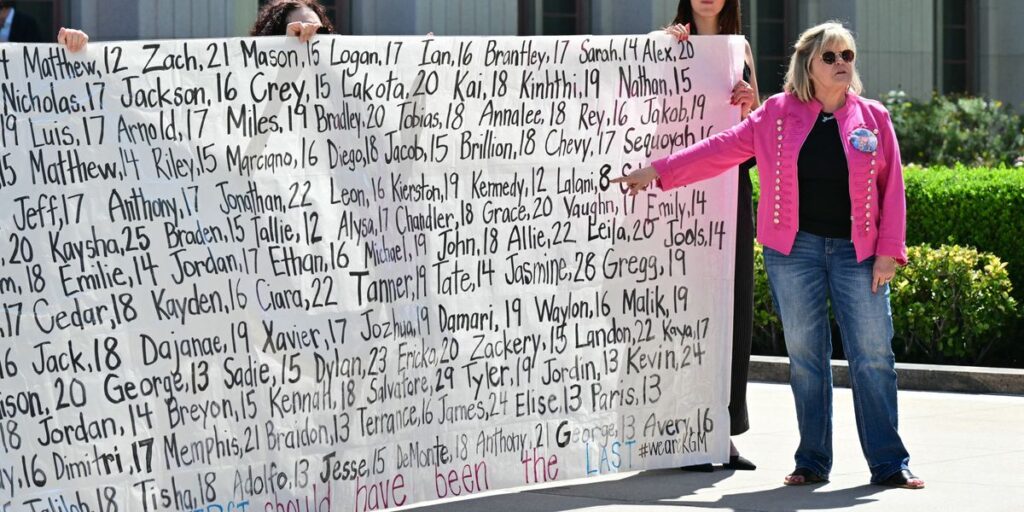 4 Matthew, 12 Zach, 21 Mason, 15 Logan, 17 Ian, 16 Brantley, 17 Sarah, 14 Alex,
Nicholas, 17 Jackson, 16 Crey, 15 Lakota, 20 Kai, 18 Kinhthi, 19 Nathan, 15
19 Luis, 17 Arnold, 17 Miles, 19 Bradley, 20 Tobias, 18 Annalee, 18 Rey, 16 Jakob, 19
15 Matthew, 14 Riley, 15 Marciano, 16 Diego, 18 Jacob, 15 Brillion, 18 Chevy, 17 Sequoyah, 16
Jeff, 17 Anthony, 17 Jonathan, 22 Leon, 16 Kierston, 19 Kennedy, 12 Lalani, 8
20 Kaysha, 25 Braden, 15 Tallie, 12 Alysa, 17 Chandler, 18 Grace, 20 Vaughn, 17 Emily, 14
18 Emilie, 14 Jordan, 17 Ethan, 16 Michael, 19 John, 18 Allie, 22 Leila, 20 Jools, 14
17 Cedar, 18 Kayden, 16 Ciara, 22 Tanner, 19 Tate, 14 Jasmine, 28 Gregg, 19
16 Jack, 18 Dajanae, 19 Xavier, 17 Jozhua, 19 Damari, 19 Waylon, 16 Malik, 19
20 George, 13 Sadie, 15 Dylan, 23 Ericka, 20 Zackery, 15 Landon, 22 Kaya, 17
18 Jordan, 14 Breyon, 15 Kennah, 18 Salvatore, 29 Tyler, 19 Jordin, 13 Kevin, 24
16 Dimitri, 17 Memphis, 21 Braidon, 13 Terrance, 16 James, 24 Elise, 13 Paris, 13
Tisha, 18 Adolfo, 13 Jesse, 15 DeMonte, 18 Anthony, 21 George, 13 Avery, 16
should have been the LAST #weareKGM